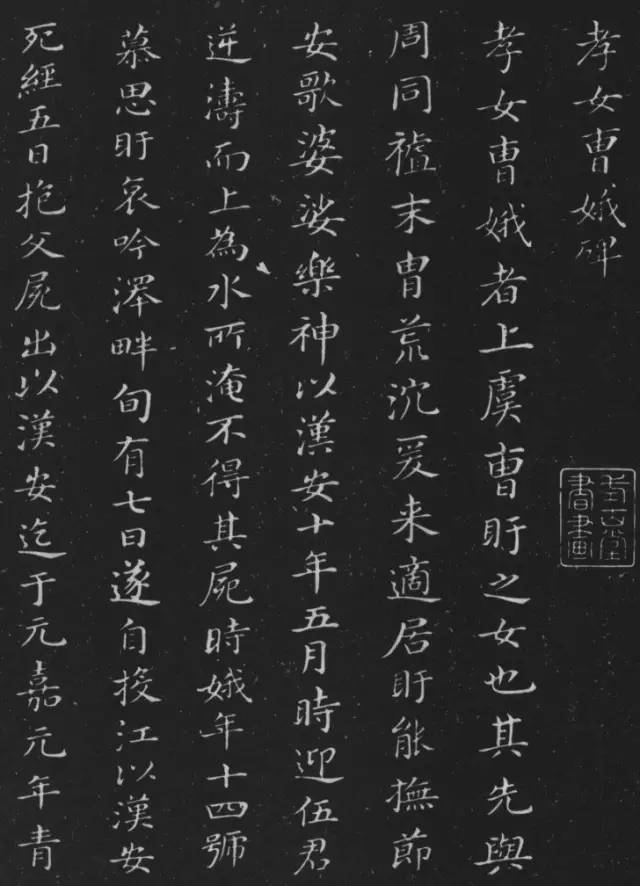 孝女曹娥碑
孝女曹娥者上虞曹盱之女也其先與
周同末冑荒沈爰来適居盱能撫節
安歌婆娑樂神以漢安十年五月時迎伍君
逆濤而上為水所淹不得其屍時娥年十四號
慕思盱哀吟澤畔旬有七日遂自投江以漢安
死經五日抱父屍出以漢安迄于元嘉元年青
書畫